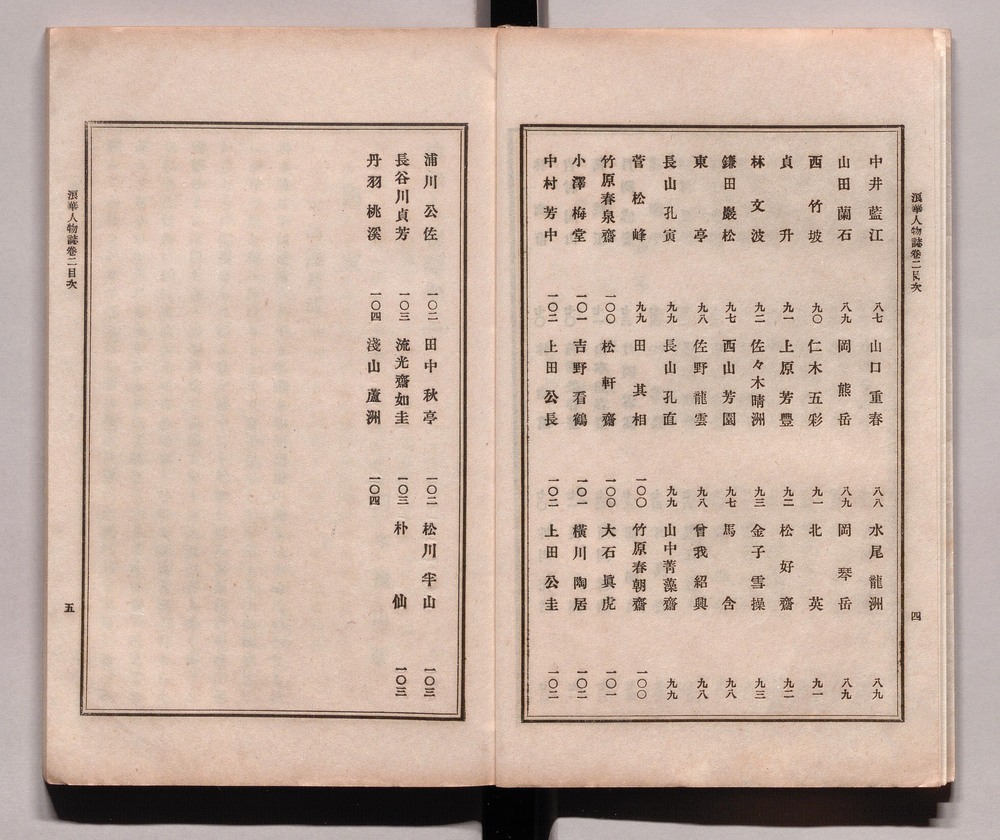 浪華人物誌卷二目次
四
中井藍江 八七 山口重春 八八 水尾龍洲 八九
山田蘭石 八九 岡熊岳 八九 岡琴岳 八九
西竹坡 九〇 仁木五彩 九一 北英 九一
貞升 九一 上原芳豐 九二 松好齋 九二
林文波 九二 佐々木晴洲 九三 金子雪操 九三
鎌田巖松 九七 西山芳園 九七 馬 九八
東亭 九八 佐野龍雲 九八 曾我紹興 九八
長山孔寅 九九 長山孔直 九九 山中菁藻齋 九九
菅松峰 九九 田其相 一〇〇 竹原春朝齋 一〇〇
竹原春泉齋 一〇〇 松軒齋 一〇〇 大石眞虎 一〇一
小澤梅堂 一〇一 吉野看鶴 一〇一 橫川陶居 一〇二
中村芳中 一〇二 上田公長 一〇二 上田公圭 一〇二
浦川公佐 一〇二 田中秋亭 一〇二 松川半山 一〇三
長谷川貞芳 一〇三 流光齋如圭 一〇三 朴仙 一〇三
丹羽桃溪 一〇四 淺山蘆洲 一〇四
浪華人物誌卷二目次
五